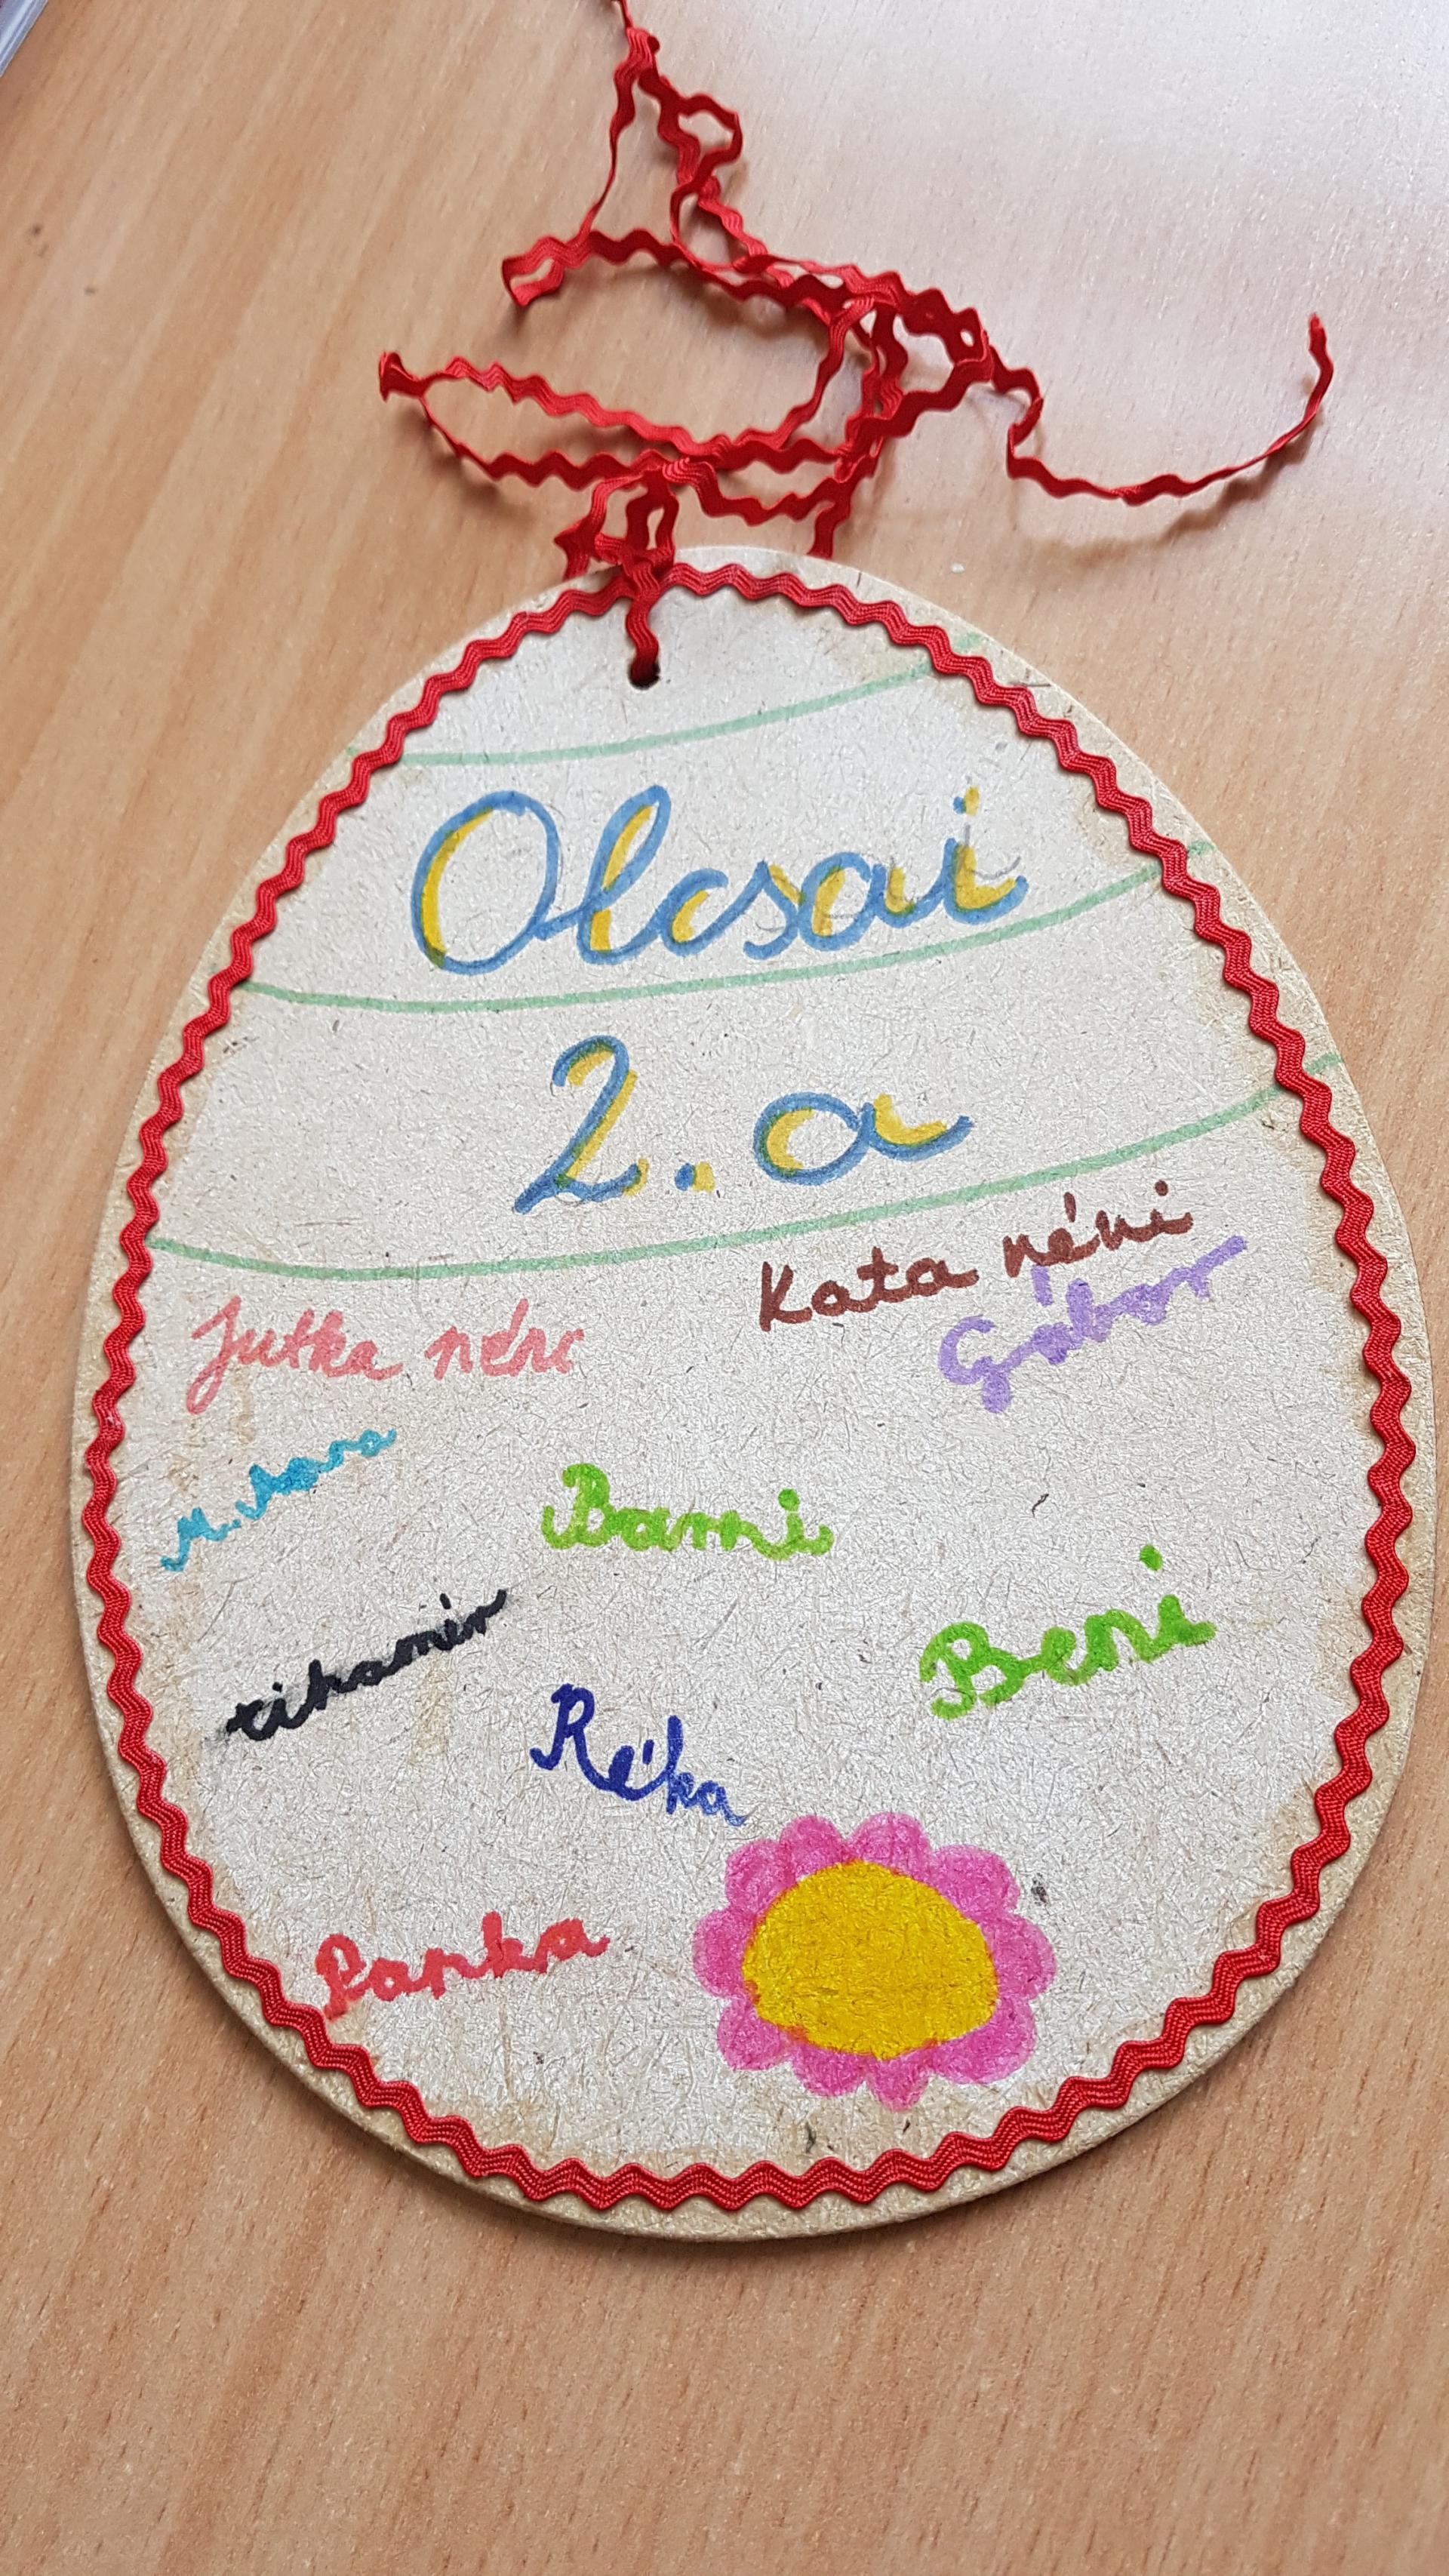 Olcsai
2. a
Kata néni
Jutka néni
Gábor
M. Anna
Bami
tihamér
Beni
Réka
Panka